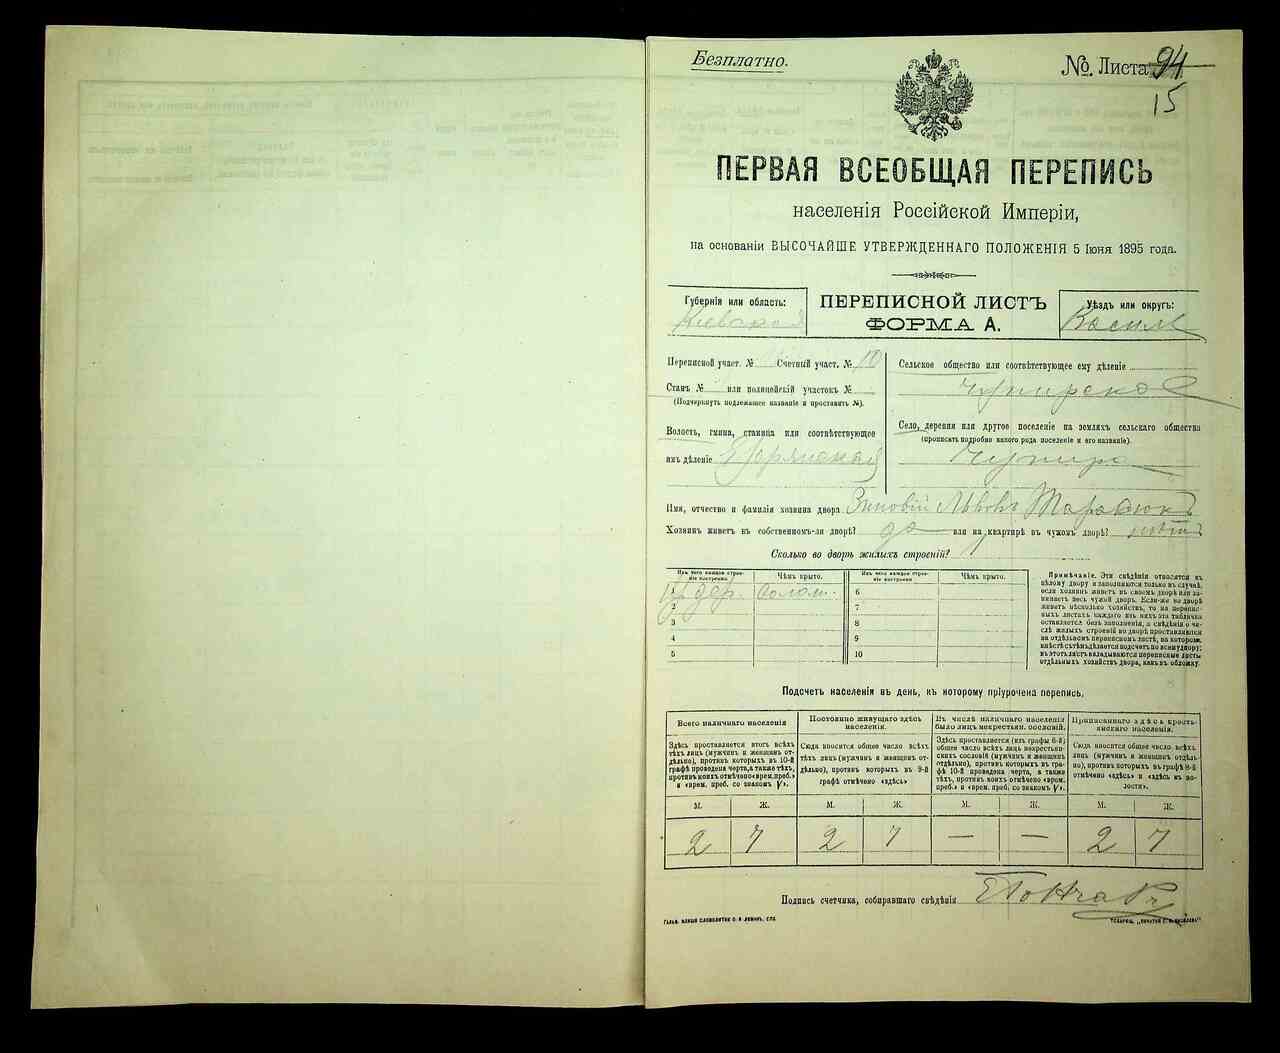 Безплатно.
№. Листа 94
15
ПЕРВАЯ ВСЕОБЩАЯ ПЕРЕПИСЬ
населенія Россійской Имперіи,
на основаніи ВЫСОЧАЙШЕ УТВЕРЖДЕННАГО ПОЛОЖЕНІЯ 5 Іюня 1895 года.
Губернія или область:
Кіевская
ПЕРЕПИСНОЙ ЛИСТЪ
ФОРМА А.
Уѣздъ или округъ:
Васильк
Переписной участ. № Счетный участ. № 10
Станъ № или полицейскій участокъ №
(Подчеркнуть подлежащее названіе и проставить №).
Волость, гмина, станица или соотвѣтствующее
имъ дѣленіе
Сельское общество или соотвѣтствующее ему дѣленіе
Чупирское
Село, деревня или другое поселеніе на земляхъ сельскаго общества
(прописать подробно какого рода поселеніе и его названіе).
Чупира
Имя, отчество и фамилія хозяина двора Зиновій Львовъ Тарасюкъ
Хозяинъ живетъ въ собственномъ-ли дворѣ? да или на квартирѣ въ чужомъ дворѣ? нѣтъ
Сколько во дворѣ жилыхъ строеній? 1
Изъ чего каждое строеніе построено Чѣмъ крыто. Изъ чего каждое строеніе построено Чѣмъ крыто.
1 дер. солом. 6
2 7
3 8
4 9
5 10
Примѣчаніе. Эти свѣдѣнія относятся къ
цѣлому двору и заполняются только въ случаѣ,
если хозяинъ живетъ въ своемъ дворѣ или за-
нимаетъ весь чужой дворъ. Если-же во дворѣ
живетъ нѣсколько хозяйствъ, то на перепис-
ныхъ листахъ каждаго изъ нихъ эта табличка
оставляется безъ заполненія, а свѣдѣнія о чи-
слѣ жилыхъ строеній во дворѣ проставляются
на отдѣльномъ переписномъ листѣ, на которомъ
вмѣстѣ съ тѣмъ дѣлается подсчетъ по всему двору;
въ этотъ листъ вкладываются переписные листы
отдѣльныхъ хозяйствъ двора, какъ въ обложку.
Подсчетъ населенія въ день, къ которому пріурочена перепись.
Всего наличнаго населенія
Здѣсь проставляется итогъ всѣхъ
тѣхъ лицъ (мужчинъ и женщинъ от-
дѣльно), противъ которыхъ въ 10-й
графѣ проведена черта, а также тѣхъ,
противъ коихъ отмѣчено «врем. преб.»
и «врем. преб. со знакомъ V».
Постоянно живущаго здѣсь
населенія.
Сюда вносится общее число всѣхъ
тѣхъ лицъ (мужчинъ и женщинъ от-
дѣльно), противъ которыхъ въ 9-й
графѣ отмѣчено «здѣсь»
Въ числѣ наличнаго населенія
было лицъ некрестьян. сословій.
Здѣсь проставляется (изъ графы 6-й)
общее число всѣхъ лицъ некрестьян-
скихъ сословій (мужчинъ и женщинъ
отдѣльно), противъ которыхъ въ гра-
фѣ 10-й проведена черта, а также
тѣхъ, противъ коихъ отмѣчено «врем.
преб.» и «врем. преб. со знакомъ V».
Приписаннаго здѣсь кресть-
янскаго населенія.
Сюда вносится общее число всѣхъ
лицъ (мужчинъ и женщинъ отдѣль-
но), противъ которыхъ въ графѣ 8-й
отмѣчено «здѣсь» и «здѣсь въ во-
лости».
М. Ж. М. Ж. М. Ж. М. Ж.
2 7 2 7 — — 2 7
Подпись счетчика, собиравшаго свѣдѣнія